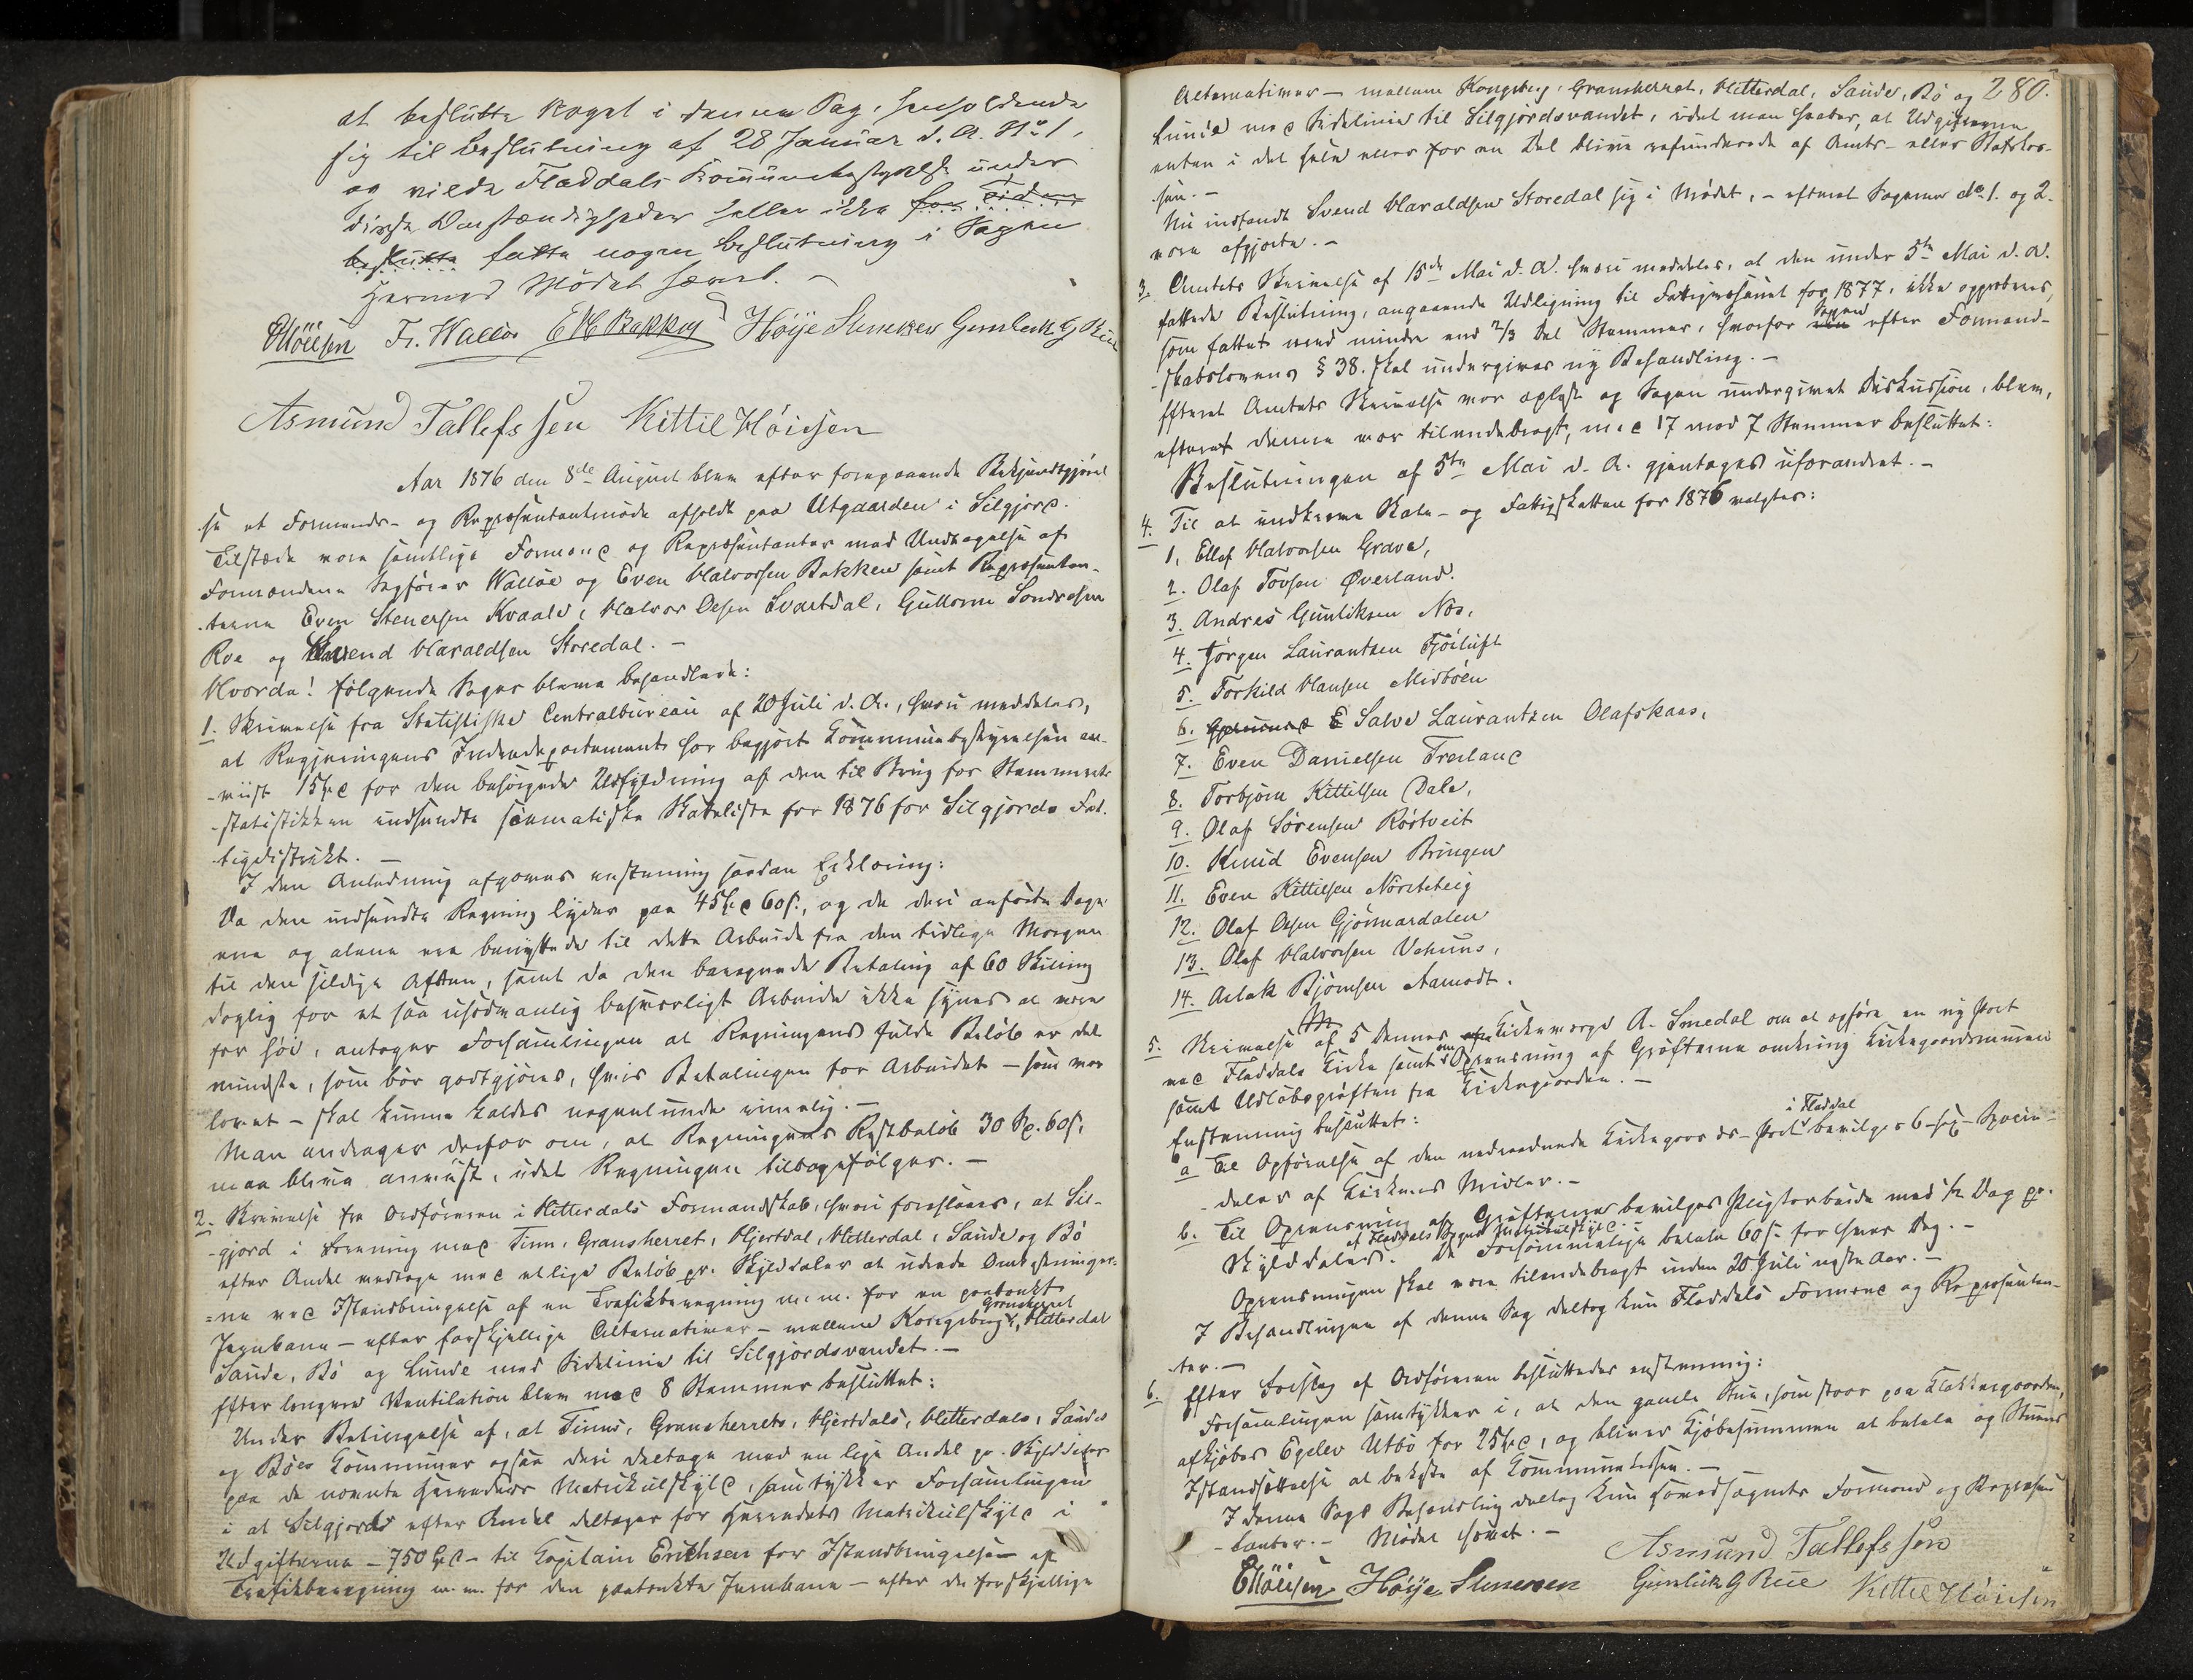 at beslutte Noget i denne Sag, henholdende
sig til Beslutning af 28 Januar d. A. No 1,
og vilde Fladdals Kommunebestyrelse under
disse Omstændigheder heller ikke for Tiden
beslutte fatte nogen Beslutning i Sagen
Hermed Mødet hævet. –
Fr. Walløe E H Bakken Høije Stenersen Gunleik G Rue
Asmund Tallefssen Kittil Höiesen
Aar 1876 den 8de August blev efter foregaaende Bekjendtgjørel
se et Formands- og Repræsentantmøde afholdt paa Utgaarden i Silgjord.
Tilstede vare samtlige Formænd og Repræsentanter med Undtagelse af
Formændene Sagfører Walløe og Even Halvorsen Bakken samt Repræsentan-
terne Even Stenersen Kvaale, Halvor Olsen Svartdal, Guttorm Sondresen
Roe og Svend Haraldsen Storedal. –
Hvorda! følgende Sager bleve behandlede:
1. Skrivelse fra Statistiske Centralbureau af 20 Juli d. A., hvori meddeles,
at Regjeringens Indredepartement har begjært Kommunebestyrelsen an-
viist 15 Spd for den besørgede Udfyldning af den til Brug for Kommune-
statistikken indsendte skematiske Skatteliste for 1876 for Silgjords Fat-
tigdistrikt. –
I den Anledning afgaves enstemmig saadan Erklæring:
Da den indsendte Regning lyder paa 45 Spd 60 s., og da deri anførte Dage
ene og alene ere benyttede til dette Arbeide fra den tidlige Morgen
til den sildige Aften, samt da den beregnede Betaling af 60 Skilling
daglig for et saa usædvanlig besværligt Arbeide ikke synes at være
for høi, antager Forsamlingen at Regningens fulde Beløb er det
mindste, som bør godtgjøres, hvis Betalingen for Arbeidet – som var
lovet – skal kunne kaldes nogenlunde rimelig. –
Man andrager derfor om, at Regningens Restbeløb 30 Sp. 60 s.
maa blive anviist, idet Regningen tilbagefølger. –
2. Skrivelse fra Ordføreren i Hitterdals Formandskab, hvori foreslaaes, at Sil-
gjord i Forening med Tinn, Gransherret, Hjertdal, Hitterdal, Saude og Bø
efter Andel medtage med et lige Beløb pr. Skylddaler at udrede Omkostninger-
ne ved Istandbringelse af en Trafikberegning m. m. for en paatænkt
Jernbane – efter forskjellige Alternativer – mellem Kongsberg, Gransherret, Hitterdal
Saude, Bø og Lunde med Sidelinie til Silgjordsvandet. –
Efter længere Ventilation blev med 8 Stemmer besluttet:
Under Betingelse af, at Tinns, Gransherrets, Hjertdals, Hitterdals, Saudes
og Bøes Kommuner ogsaa deri deltage med en lige Andel pr. Skylddaler
paa de nævnte Herreders Matrikulskyld, samtykker Forsamlingen
i at Silgjord efter Andel deltager for Herredets Matrikulskyld i
Udgifterne – 750 Spd – til Kapitain Erichsen for Istandbringelsen af
Trafikberegning m. m. for den paatænkte Jernbane – efter de forskjellige
280.
Alternativer – mellem Kongsberg, Gransherret, Hitterdal, Saude, Bø og
Lunde med Sidelinie til Silgjordsvandet, idet man haaber, at Udgifterne
enten i det hele eller for en Del blive refunderede af Amts- eller Statskas-
sen. –
Nu indfandt Svend Haraldsen Storedal sig i Mødet, – efterat Sagerne No 1. og 2.
vare afgjorte. –
3. Amtets Skrivelse af 15de Mai d. A. hvori meddeles, at den under 5te Mai d. A.
fattede Beslutning, angaaende Udligning til Fattigvæsenet for 1877, ikke approberes,
som fattet med mindre end 2/3 Del Stemmer, hvorfor den Sagen efter Formand-
skabslovens § 38. skal undergives ny Behandling. –
Efterat Amtets Skrivelse var oplæst og Sagen undergivet Diskussion, blev,
efterat denne var tilendebragt, med 17 mod 7 Stemmer besluttet:
Beslutningen af 5te Mai d. A. gjentages uforandret. –
4. Til at indkræve Skole- og Fattigskatten for 1876 valgtes:
1. Ellef Halvorsen Grave,
2. Olaf Tovsen Øverland.
3. Andres Gunliksen Nes,
4. Jörgen Laurantzen Fjöiluft
5. Torkild Hansen Midböen
6. Salve Laurantzen Olafskaas,
7. Even Danielsen Treiland
8. Torbjörn Kittilsen Dale,
9. Olaf Sörensen Röstveit
10. Knud Evensen Bringen
11. Even Kittilsen Nörstebeig
12. Olaf Olsen Gjönnardalen
13. Olaf Halvorsen Vehuus,
14. Aslak Björnsen Aamodt.
5. Skrivelse af 5 dennes fra Kirkeværge A. Smedal om at opføre en ny Port
ved Fladdals Kirke samt om Oprensning af Grøfterne omkring Kirkegaardsmuren
samt Udløbsgrøften fra Kirkegaarden. –
Enstemmig besluttet:
a Til Opførelse af den nedraadnede Kirkegaards-Port i Fladdal bevilges 6 – sex – Specie-
daler af Kirkens Midler. –
b. Til Oprensning af Grøfterne bevilges Pligtarbeide med 1/2 Dag pr.
Skylddaler af Fladdals Sogns Matrikulskyld. De Forsømmelige betale 60 s. for hver Dag. –
Oprensningen skal være tilendebragt inden 20 Juli næste Aar. –
I Behandlingen af denne Sag deltog kun Fladdals Formænd og Repræsentan-
ter. –
6. Efter Forslag af Ordføreren besluttedes enstemmig:
Forsamlingen samtykker i, at den gamle Stue, som staar paa Klokkergaarden,
afkjøbes Egelev Utbö for 25 Spd, og bliver Kjøbesummen at betale og Stuens
Istandsættelse at bekoste af Kommunekassen. –
I denne Sags Behandling deltog kun Hovedsognets Formænd og Repræsen
tanter. – Mødet hævet. –
Asmund Tallefssen
Høije Stenersen Gunleik G Rue Kittil Höiesen